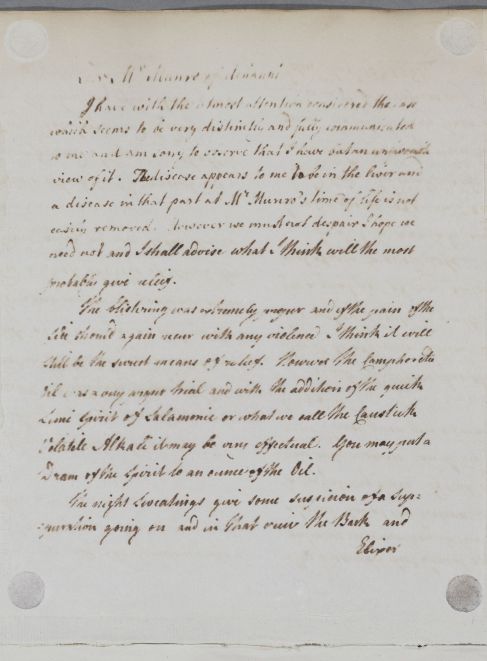 For Mr Munro of
I have with the utmost attention considered the case
which seems to be very distinctly and fully communicated
to me and am sorry to observe that I have but an
view of it. The disease appears to me to be in the liver and
a disease in that part at Mr Munro's time of life is not
easily removed. However we must not despair I hope we
need not and I shall advise what I think will the most
probably give relief.
The blistering was extremely proper and if the pain of the
side should again recur with any violence I think it will
still be the surest means of relief. However the Camphorated
Oil was a very proper trial and with the addition of the quick
Lime Spirit of Salammoniac or what we call the Caustick
Volatile Alkali it may be very effectual. You may put a
Dram of the Spirit to an ounce of the Oil.
The night Sweatings give some suspicion of a Sup=
=puration going on and in that view the Bark and
Elixer